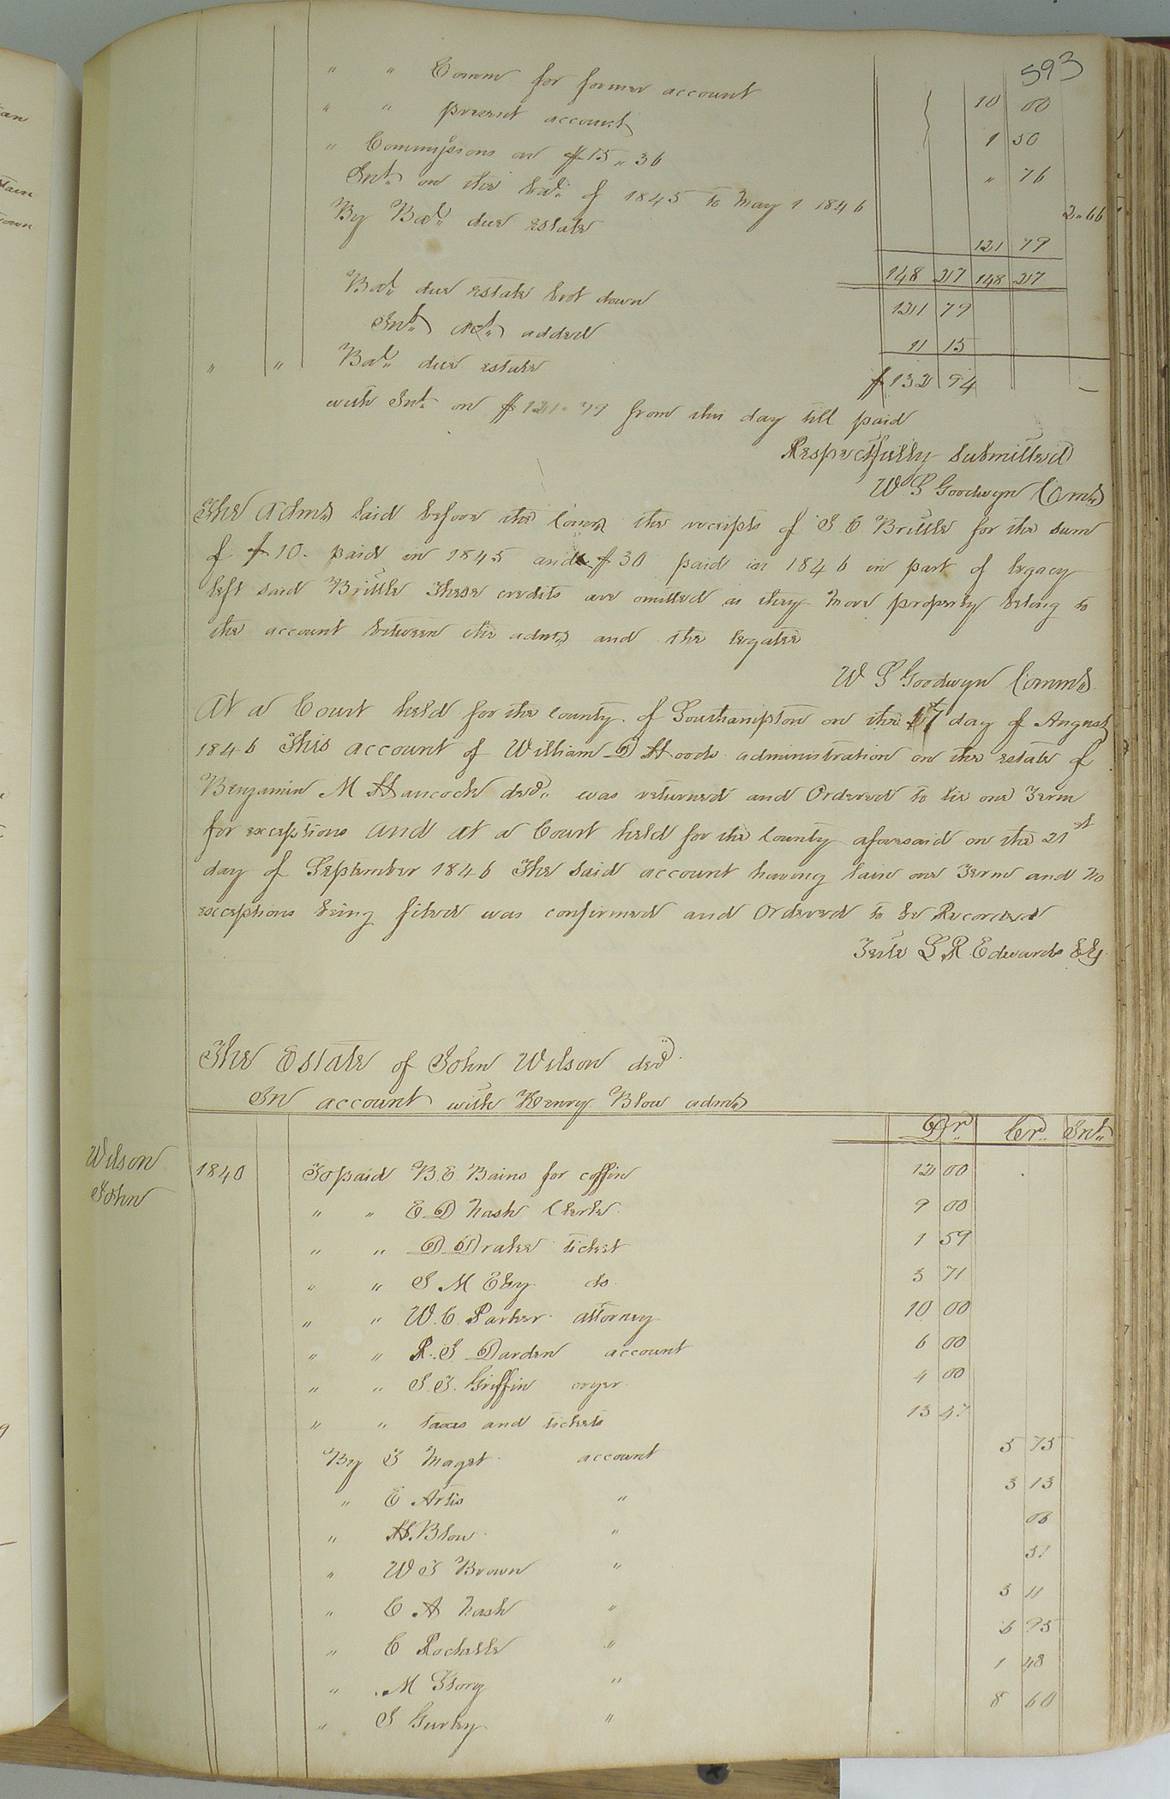 593
" " Comm for former account 10 00
" " present account 1 50
" Commissions on $15 " 36 " 76
Int. on the bal. of 1845 to May 1 1846 2 " 66
By Bal. due estate 121 79
148 27 148 27
Bal. due estate brot down 121 79
Int. Act. added 11 15
" " Bal. due estate $132 94 —
with Int. on $121 " 79 from this day till paid
Respectfully Submitted
W S Goodwyn Comr
The Admr laid before the Comr the receipts of J E Brittle for the sum
of $10. paid in 1845 and $30 paid in 1846 in part of legacy
left said Brittle These credits are omitted as they more property belong to
the account between the admr and the legatee
W S Goodwyn Commr
At a Court held for the County of Southampton on the 17 day of August
1846 This account of William D Hoods administration on the estate of
Benjamin M Hancock decd. was returned and Ordered to lie one Term
for exceptions And At a Court held for the County aforesaid on the 21st
day of September 1846 The said account having lain one Term and no
exceptions being filed was confirmed and Ordered to be Recorded
Teste L R Edwards Clk
The Estate of John Wilson decd
In account with Henry Blow admr
Dr. Cr. Int.
Wilson
John
1840 To paid B. E Bains for coffin 12 00
" " E D Nash Clerk 9 00
" " D Drake ticket 1 59
" " S M Eley do 3 71
" " W. C. Parker attorney 10 00
" " R. S Darden account 6 00
" " J. J. Griffin cryer 4 00
" " taxes and tickets 13 47
By J Maget account 5 75
" E Artis " 3 13
" H. Blow " 06
" W J Brown "
" C A Nash " 3 11
" C Rochelle " 6 95
" M Story " 1 48
" J Gurley " 8 60